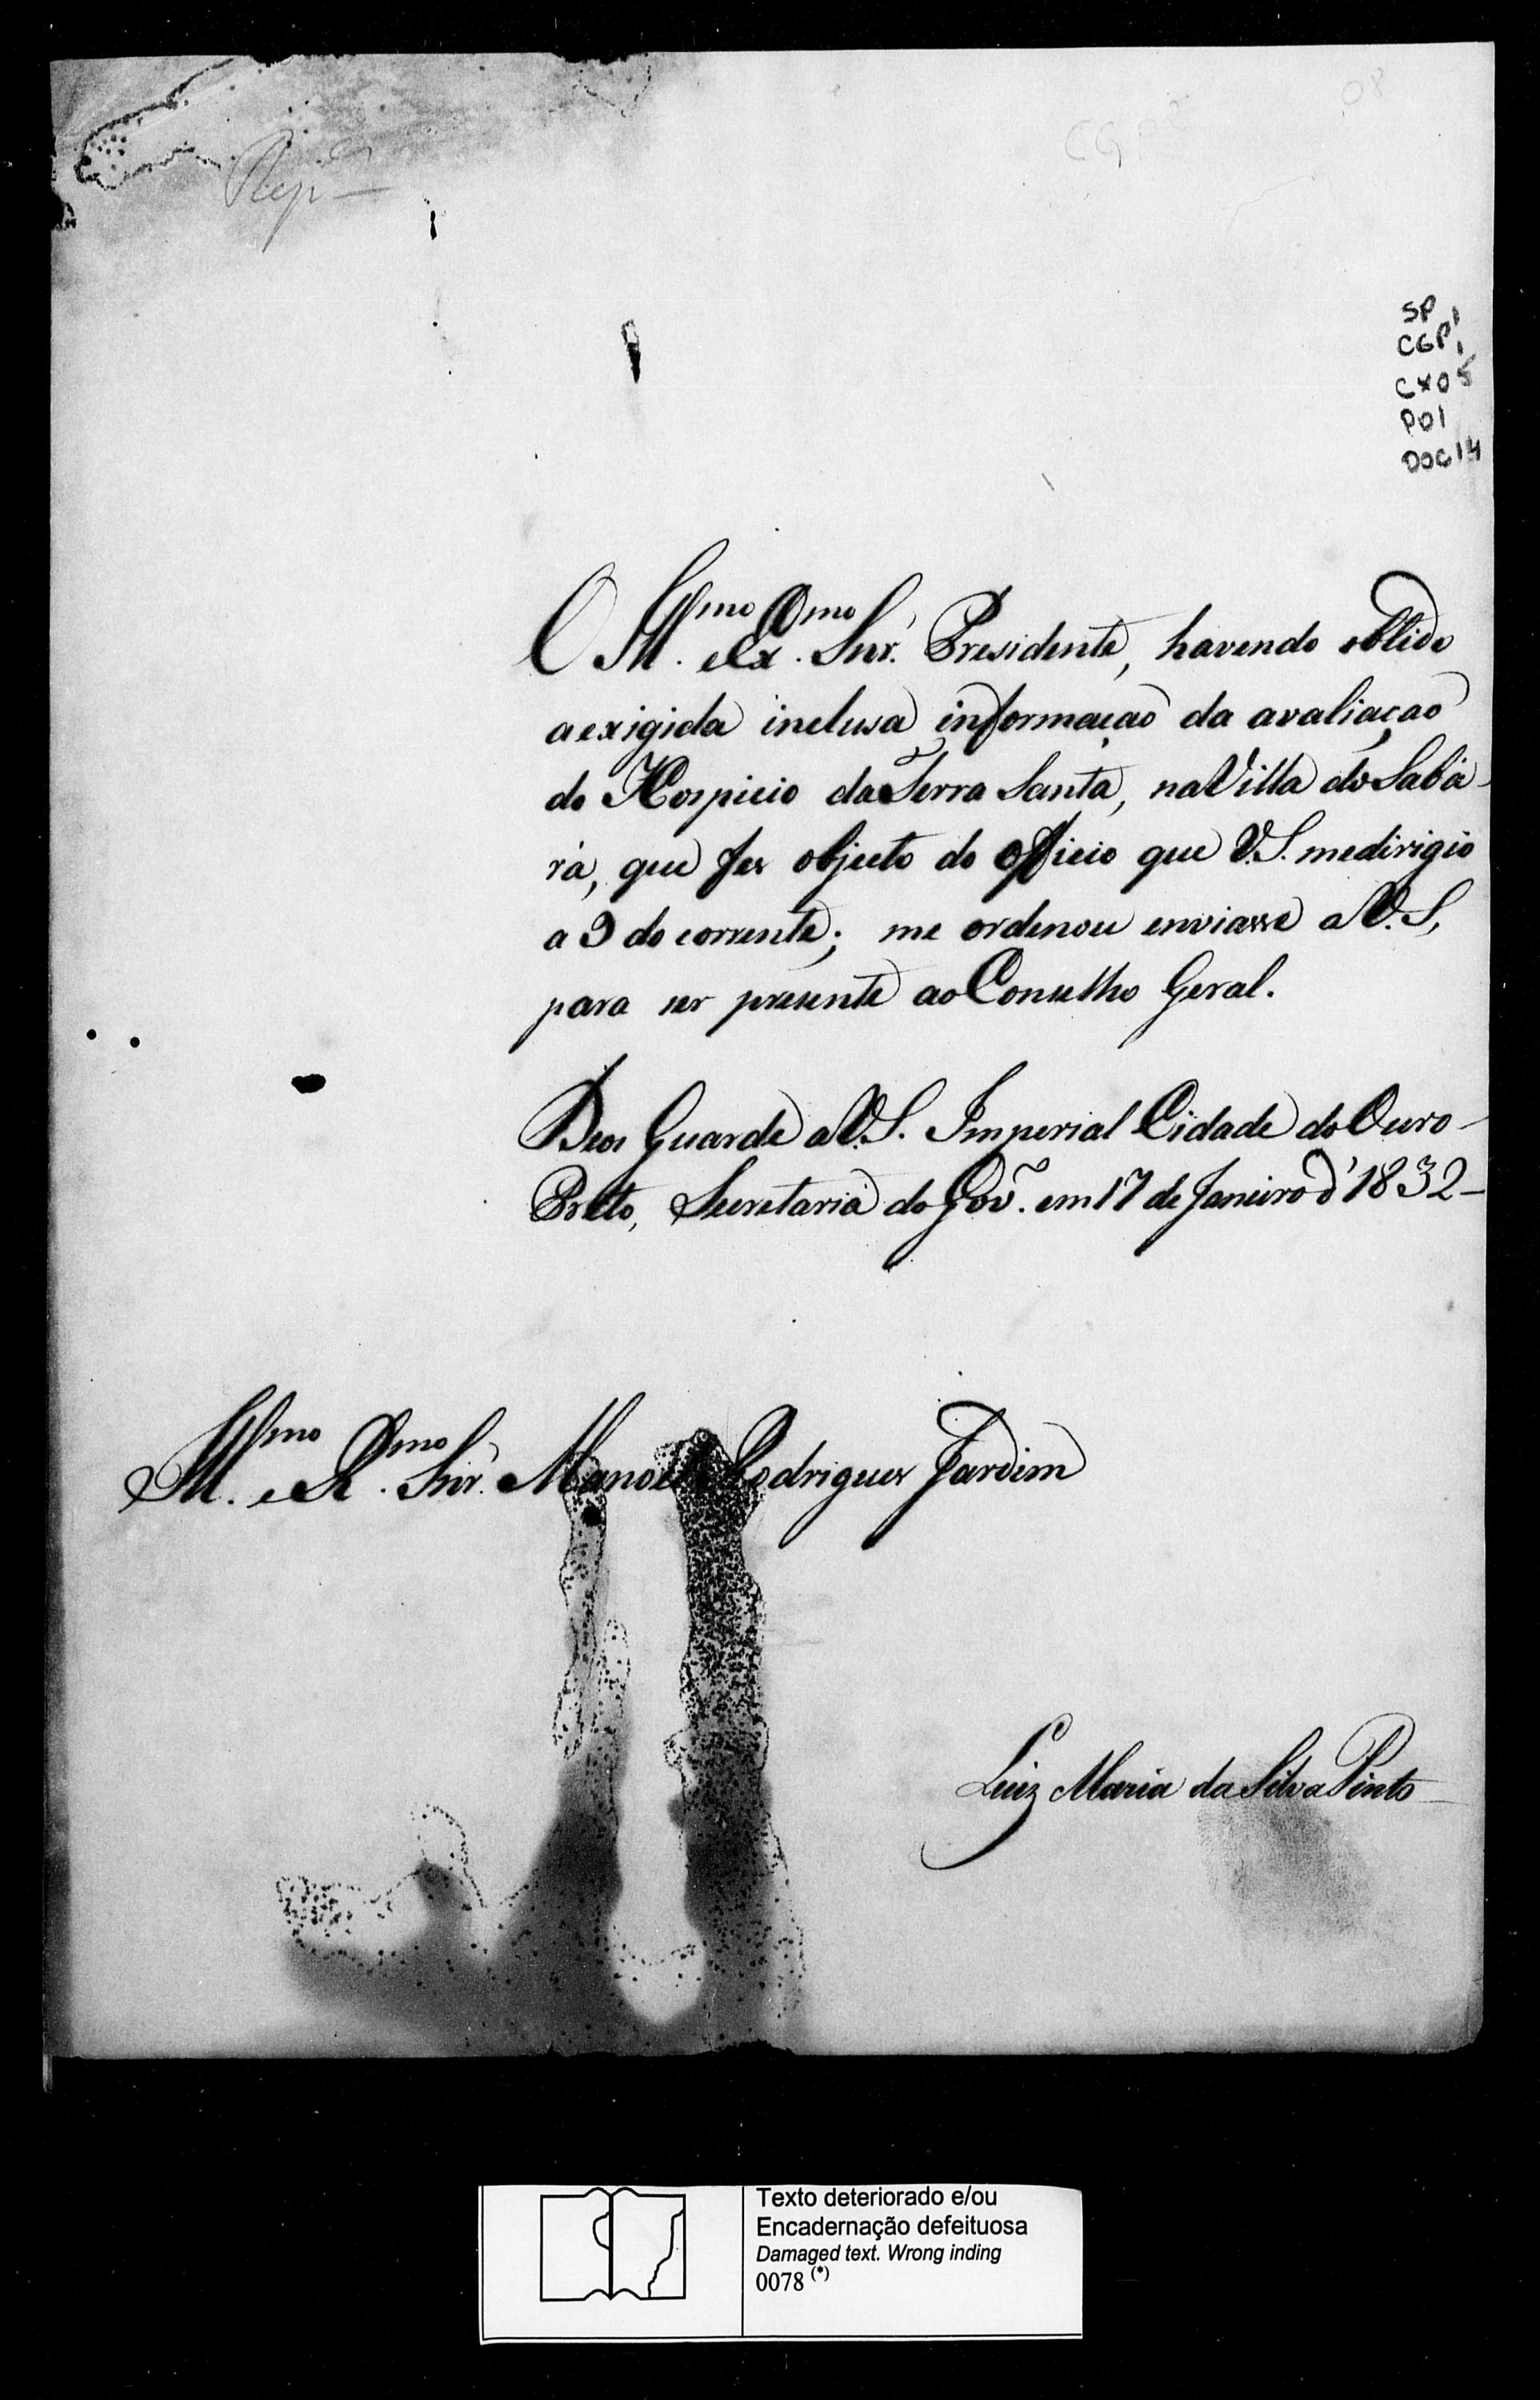 08
CGP
Rep.am
SP
CGP1
CX05
P01
DOC14
O Ill.mo e Ex.mo Snr. Presidente, havendo obtido
a exigida inclusa informação da avaliação
do Hospicio da Terra Santa, na Villa do Saba-
rá, que fes objecto do officio que V.S. me dirigio
a 9 do corrente; me ordenou enviasse a V.S,
para ser presente ao Conselho Geral.
Deos Guarde a V.S. Imperial Cidade do Ouro-
Preto, Secretaria do Gov.º em 17 de Janeiro d'1832-
Ill.mo e R.mo Snr. Manoel Rodrigues Jardim
Luiz Maria da Silva Pinto
Texto deteriorado e/ou
Encadernação defeituosa
Damaged text. Wrong inding
0078 (*)